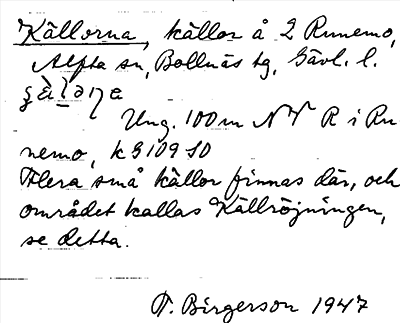 Källorna, källor å 2 Runemo,
Alfta sn, Bollnäs tg, Gävl. l.
Ung. 100 m NV R i Ru-
nemo, k 3109 SO
Flera små källor finnas där, och
området kallas Källröjningen,
se detta.
T. Birgerson 1947